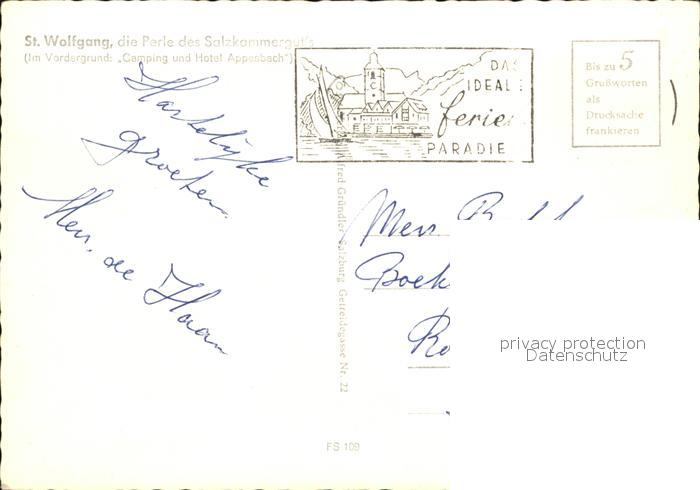 St. Wolfgang, die Perle des Salzkammergut's
(Im Vordergrund: „Camping und Hotel Appesbach")
DAS
IDEALE
Ferien
PARADIES
Bis zu 5
Grußworten
als
Drucksache
frankieren
Hartelijke
groeten
de Haan
Gründler, Salzburg, Getreidegasse Nr. 22
privacy protection
Datenschutz
FS 109